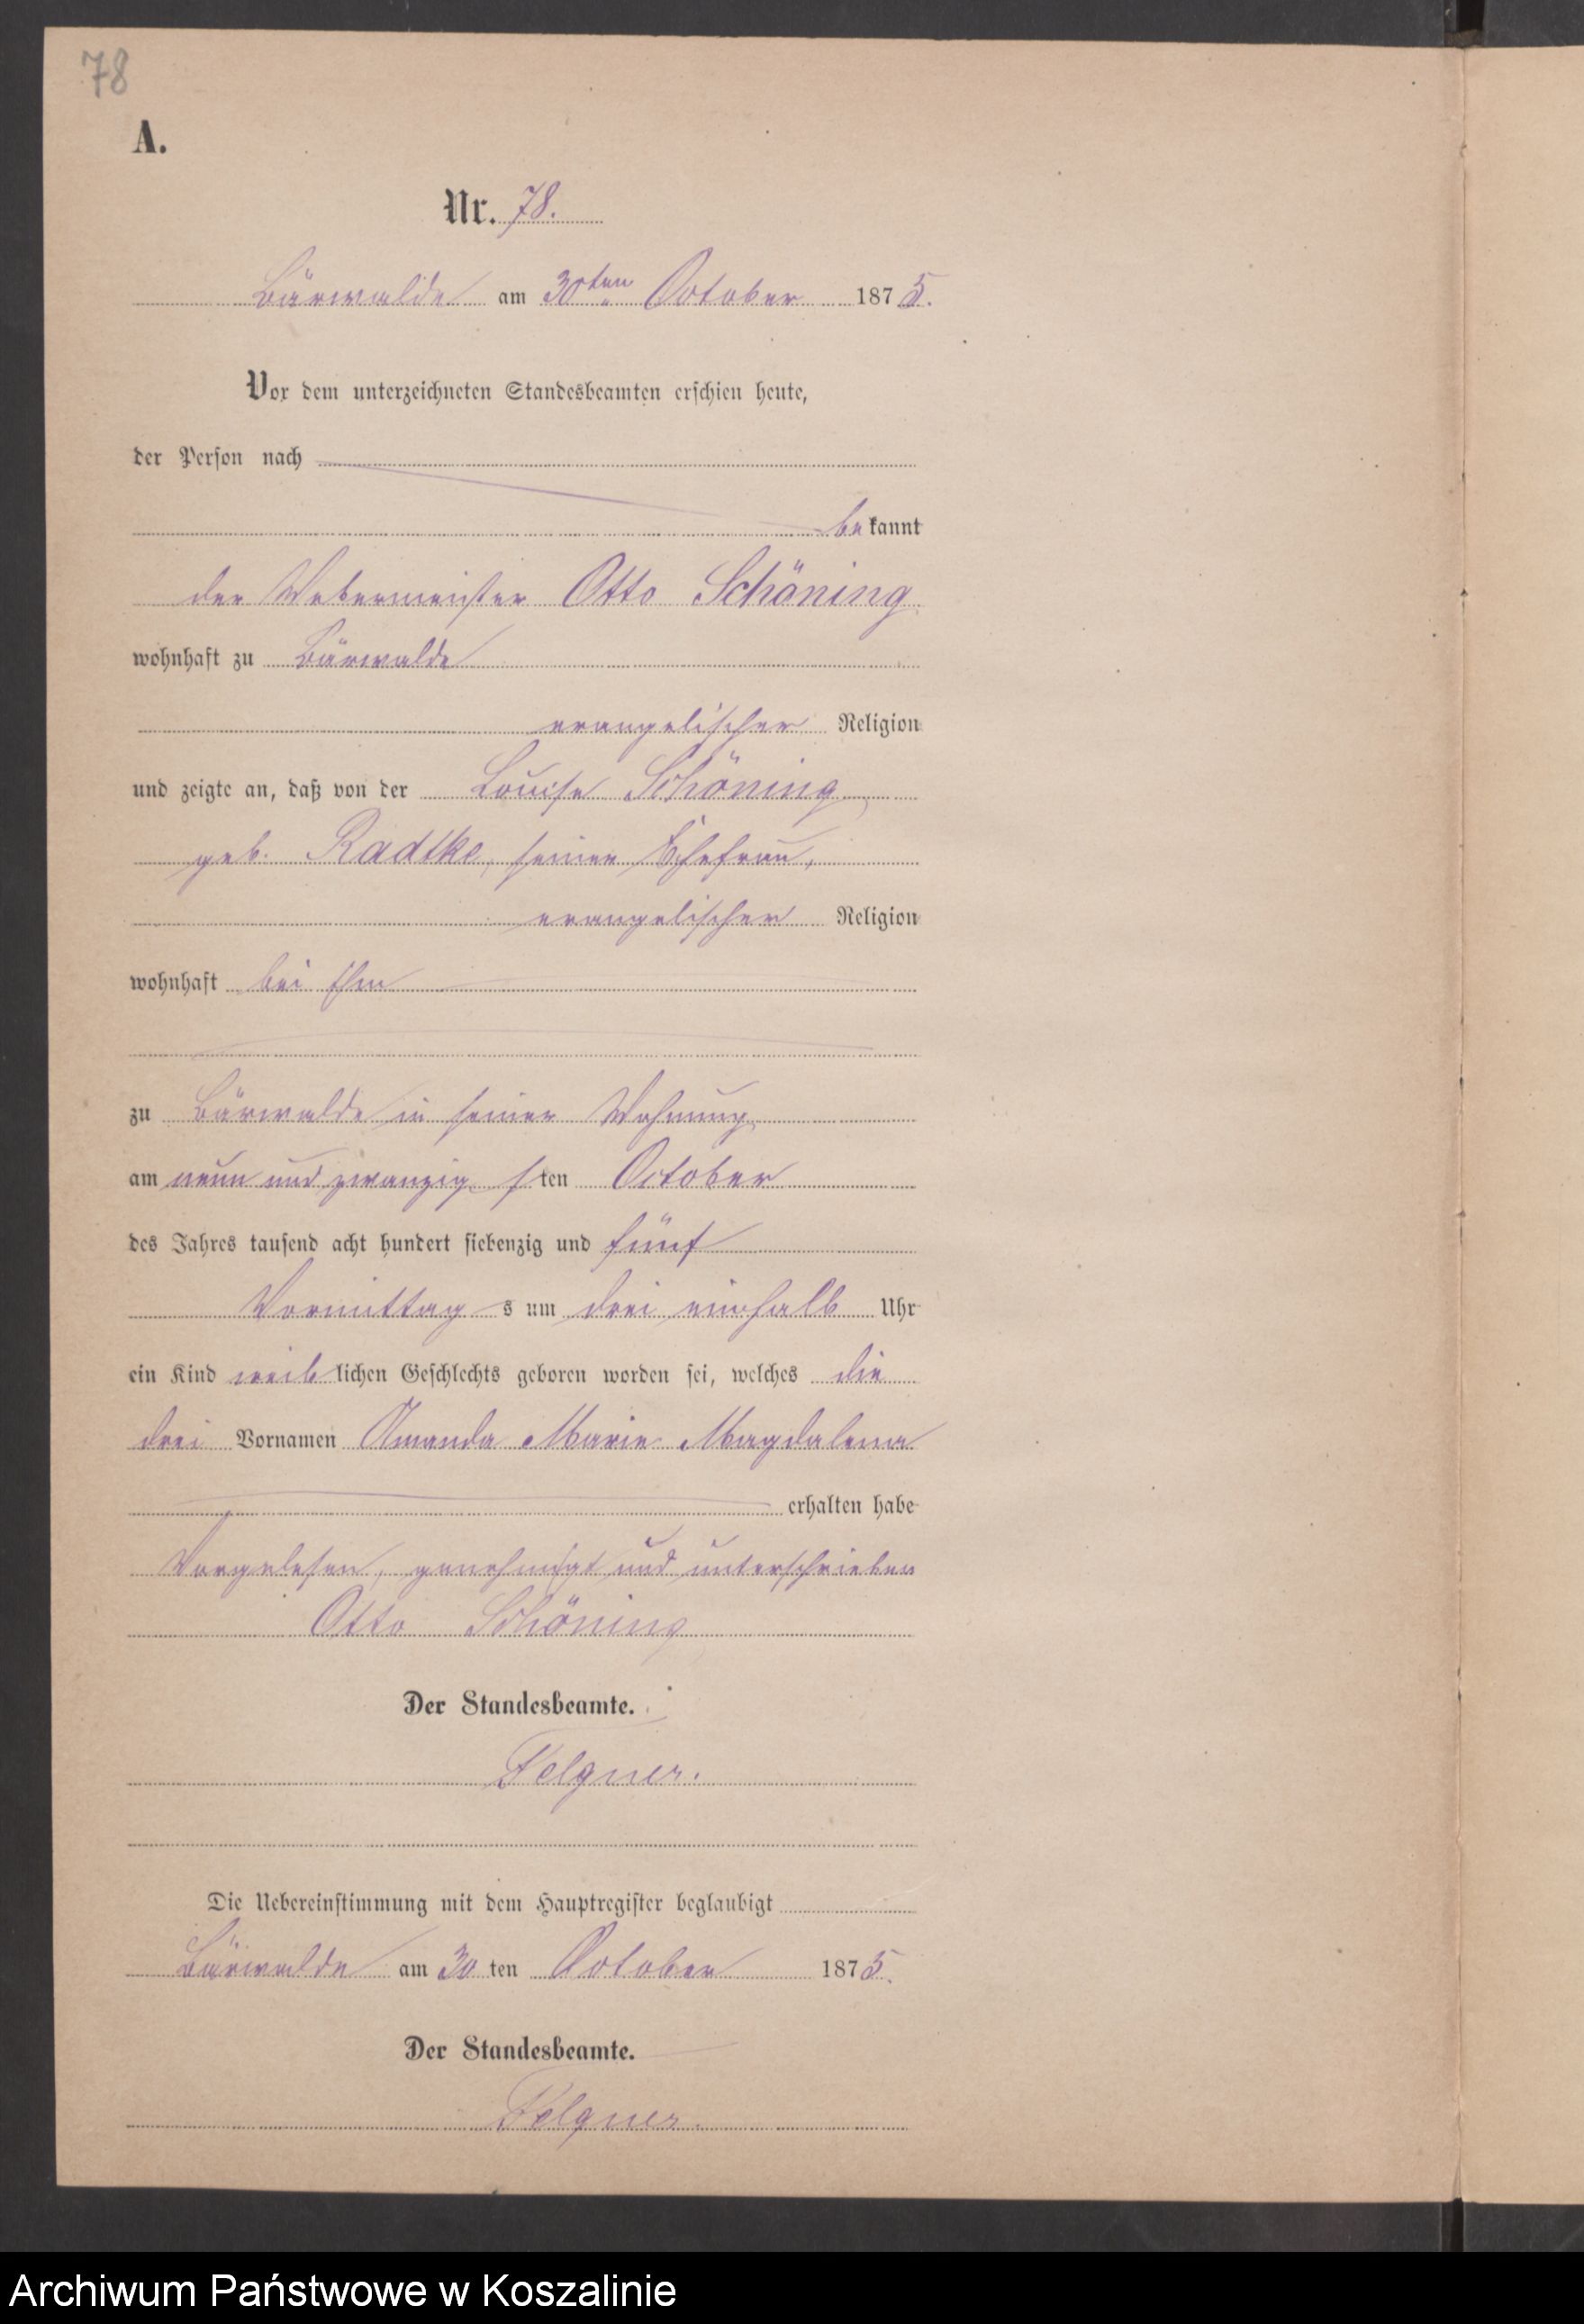 78
A.
Nr. 78.
Bärwalde am 30ten October 1875.
Vor dem unterzeichneten Standesbeamten erschien heute,
der Person nach
bekannt
der Webermeister Otto Schöning
wohnhaft zu Bärwalde
evangelischer Religion
und zeigte an, daß von der Louise Schöning
geb. Radtke, seiner Ehefrau,
evangelischer Religion
wohnhaft bei ihm
zu Bärwalde in seiner Wohnung
am neun und zwanzigsten October
des Jahres tausend acht hundert siebenzig und fünf
Vormittags um drei einhalb Uhr
ein Kind weiblichen Geschlechts geboren worden sei, welches die
drei Vornamen Amanda Marie Magdalena
erhalten habe
Vorgelesen, genehmigt und unterschrieben
Otto Schöning
Der Standesbeamte.
Felgner.
Die Uebereinstimmung mit dem Hauptregister beglaubigt
Bärwalde am 30ten October 1875.
Der Standesbeamte.
Felgner.
Archiwum Państwowe w Koszalinie